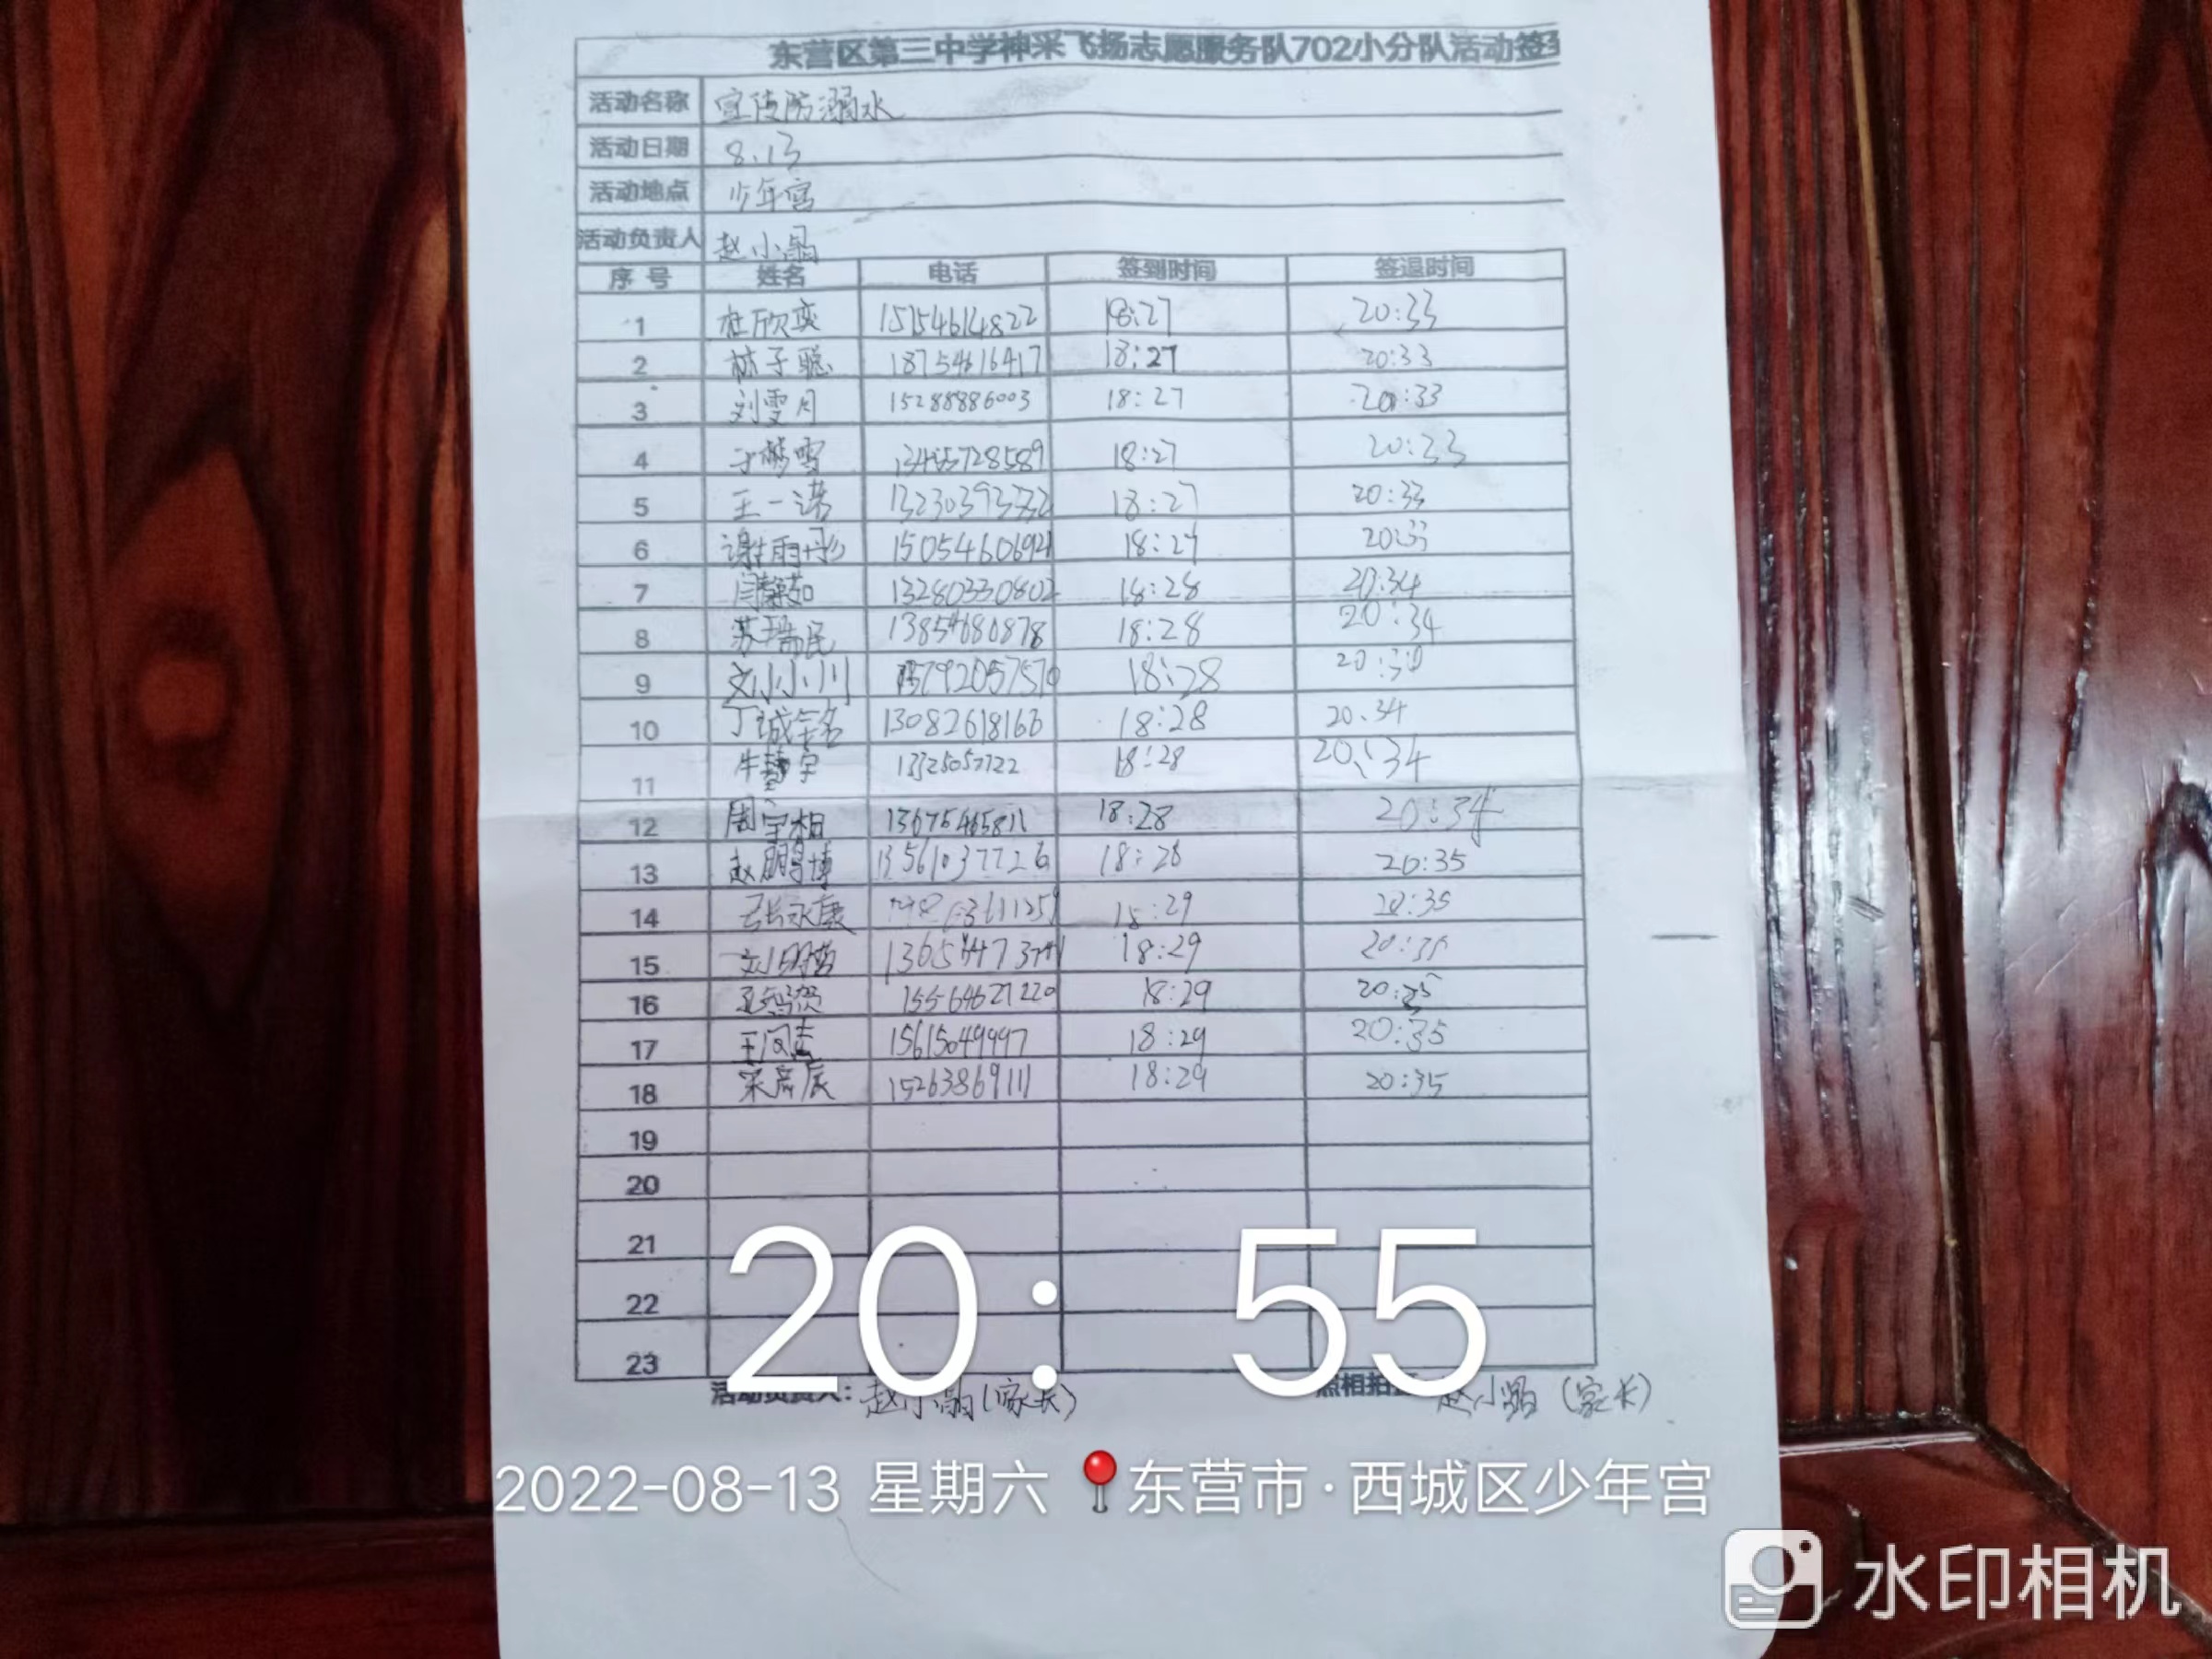 东营区第三中学神采飞扬志愿服务队702小分队活动签到
活动名称 宣传防溺水
活动日期 8.13
活动地点 少年宫
活动负责人 赵小晶
序号 姓名 电话 签到时间 签退时间
1 杜欣奕 15154614822 18:27 20:33
2 林子聪 18754616417 18:27 20:33
3 刘雯月 15288886003 18:27 20:33
4 13455728589 18:27 20:33
5 王一诺 18:27 20:33
6 谢雨彤 15054606921 18:27 20:33
7 闫静茹 13280330802 18:28 20:34
8 苏瑞民 13854680878 18:28 20:34
9 刘小川 18:28
10 丁诚铭 13082618166 18:28 20.34
11 18:28 20:34
12 13675465811 18:28 20:34
13 赵鹏博 13561037726 18:28 20:35
14 张永康 18:29 20:35
15 18:29 20:35
16 15564621220 18:29
17 15615049997 18:29 20:35
18 15263869111 18:29 20:35
19
20
21
22
23
20:55
活动负责人：赵小晶（家长） 赵小晶（家长）
2022-08-13 星期六 东营市·西城区少年宫
水印相机